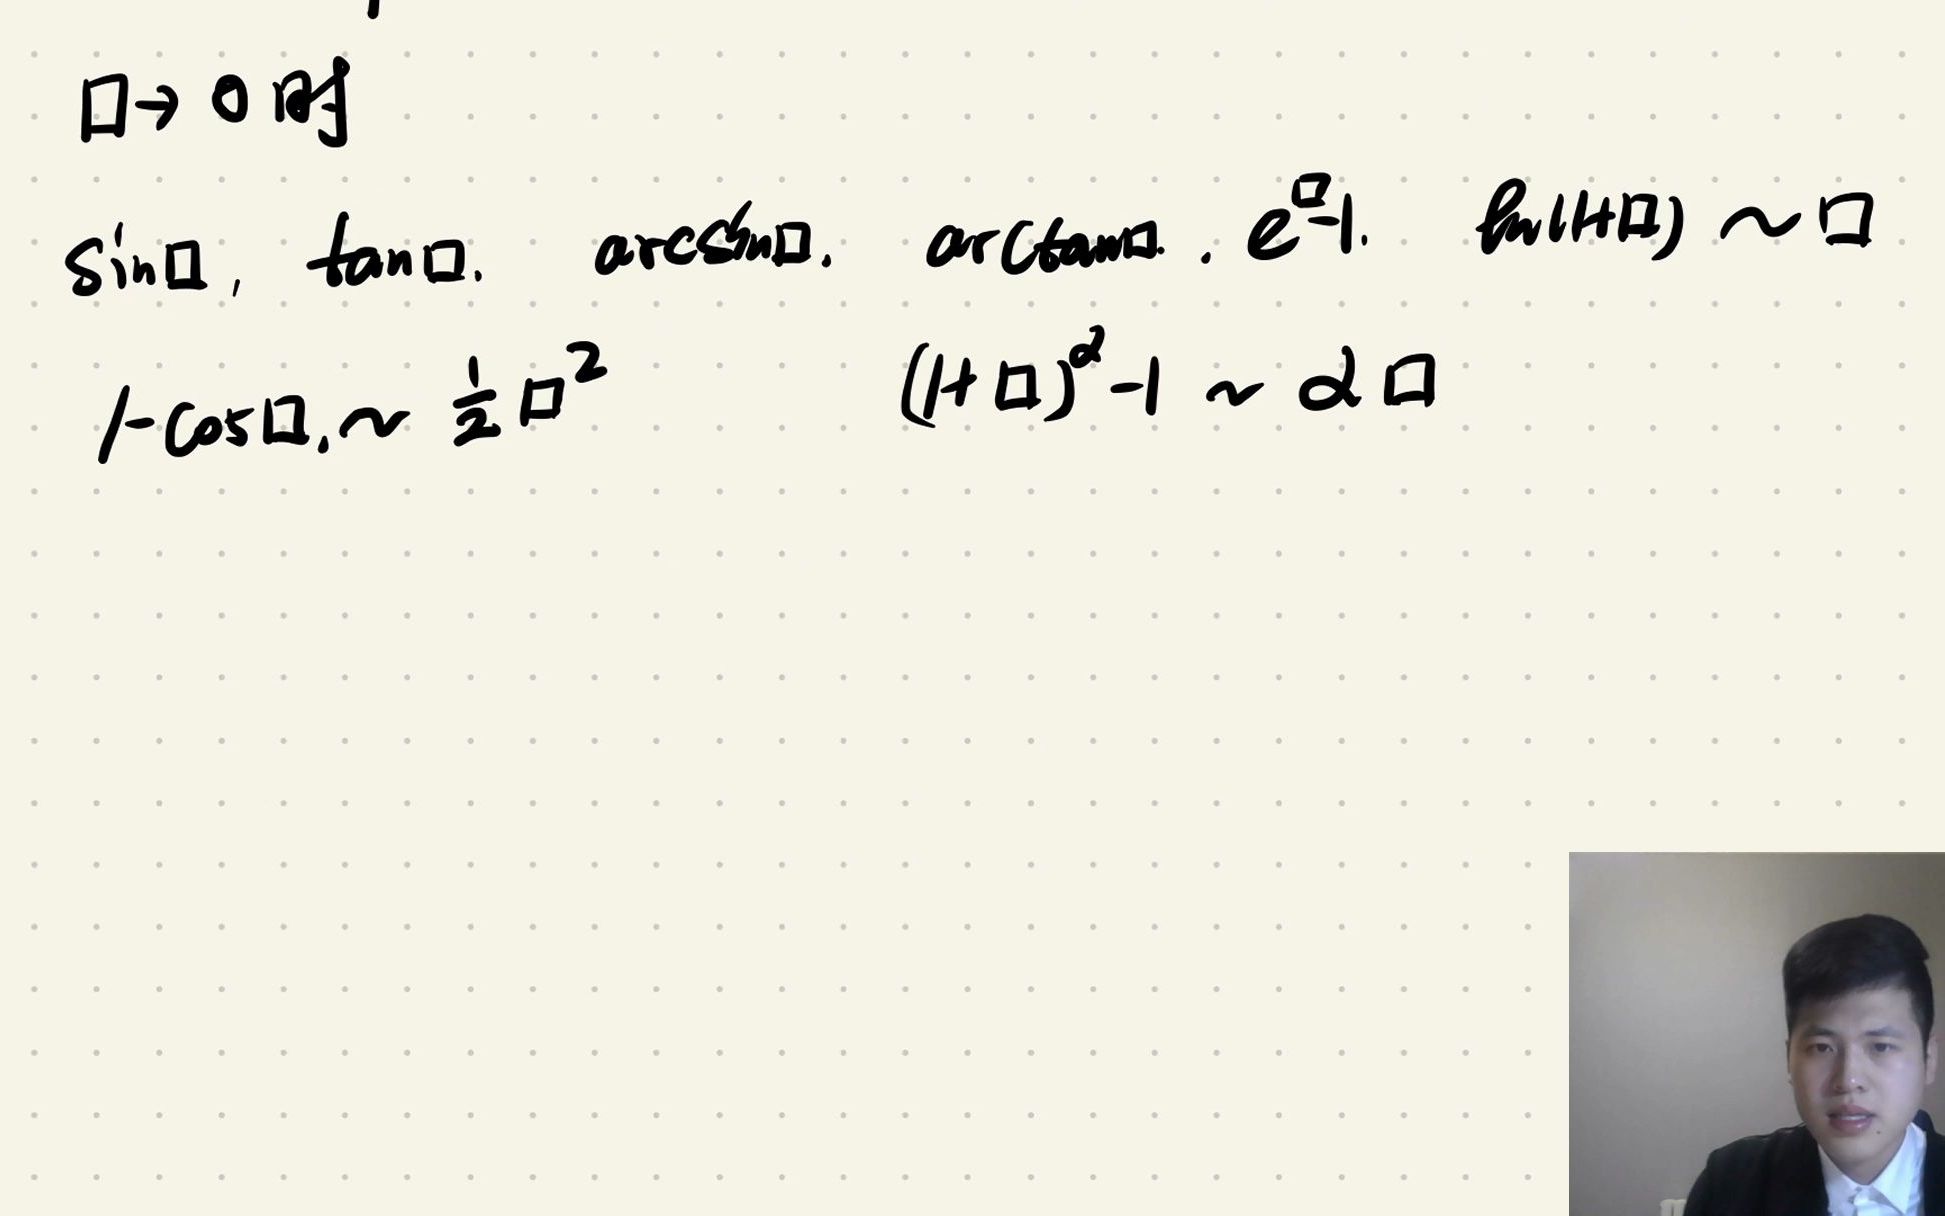 □→0时
sin□, tan□. arcsin□. arctan□. e^□-1. ln(1+□) ~ □
1-cos□. ~ 1/2 □^2 (1+□)^α-1 ~ α□